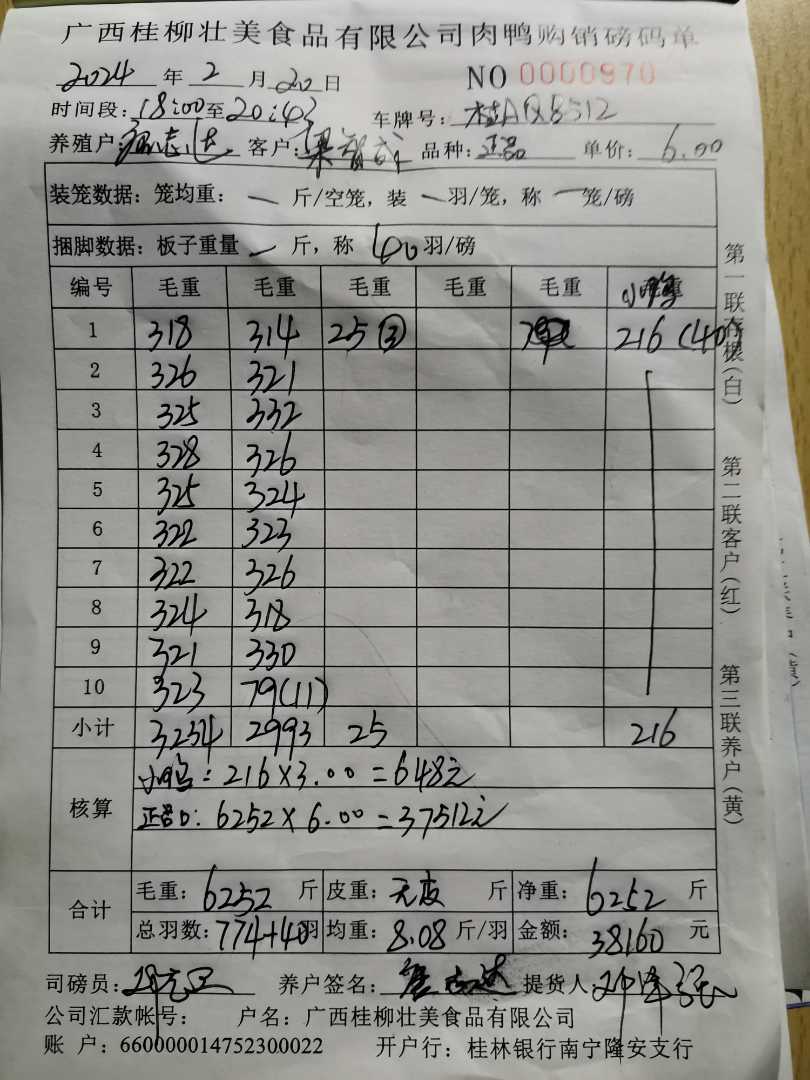 广西桂柳壮美食品有限公司肉鸭购销磅码单
2024年2月20日 NO 0000970
时间段:18:00至20:43 车牌号:桂AQ8512
养殖户: 志达 客户:梁智 品种:正品 单价:6.00
装笼数据:笼均重:一斤/空笼,装一羽/笼,称一笼/磅
捆脚数据:板子重量一斤,称40羽/磅
编号 毛重 毛重 毛重 毛重 毛重 小鸭
1 318 314 25③ 216(40)
2 326 321
3 325 332
4 328 326
5 325 324
6 322 323
7 322 326
8 324 318
9 321 330
10 323 79(11)
小计 3234 2993 25 216
核算
小鸭:216×3.00=648元
正品:6252×6.00=37512元
合计
毛重:6252斤 皮重:无皮斤 净重:6252斤
总羽数:774+40羽 均重:8.08斤/羽 金额:38160元
司磅员: 养户签名: 志达 提货人:
公司汇款帐号: 户名:广西桂柳壮美食品有限公司
账 户:660000014752300022 开户行:桂林银行南宁隆安支行
第一联存根(白)
第二联客户(红)
第三联养户(黄)